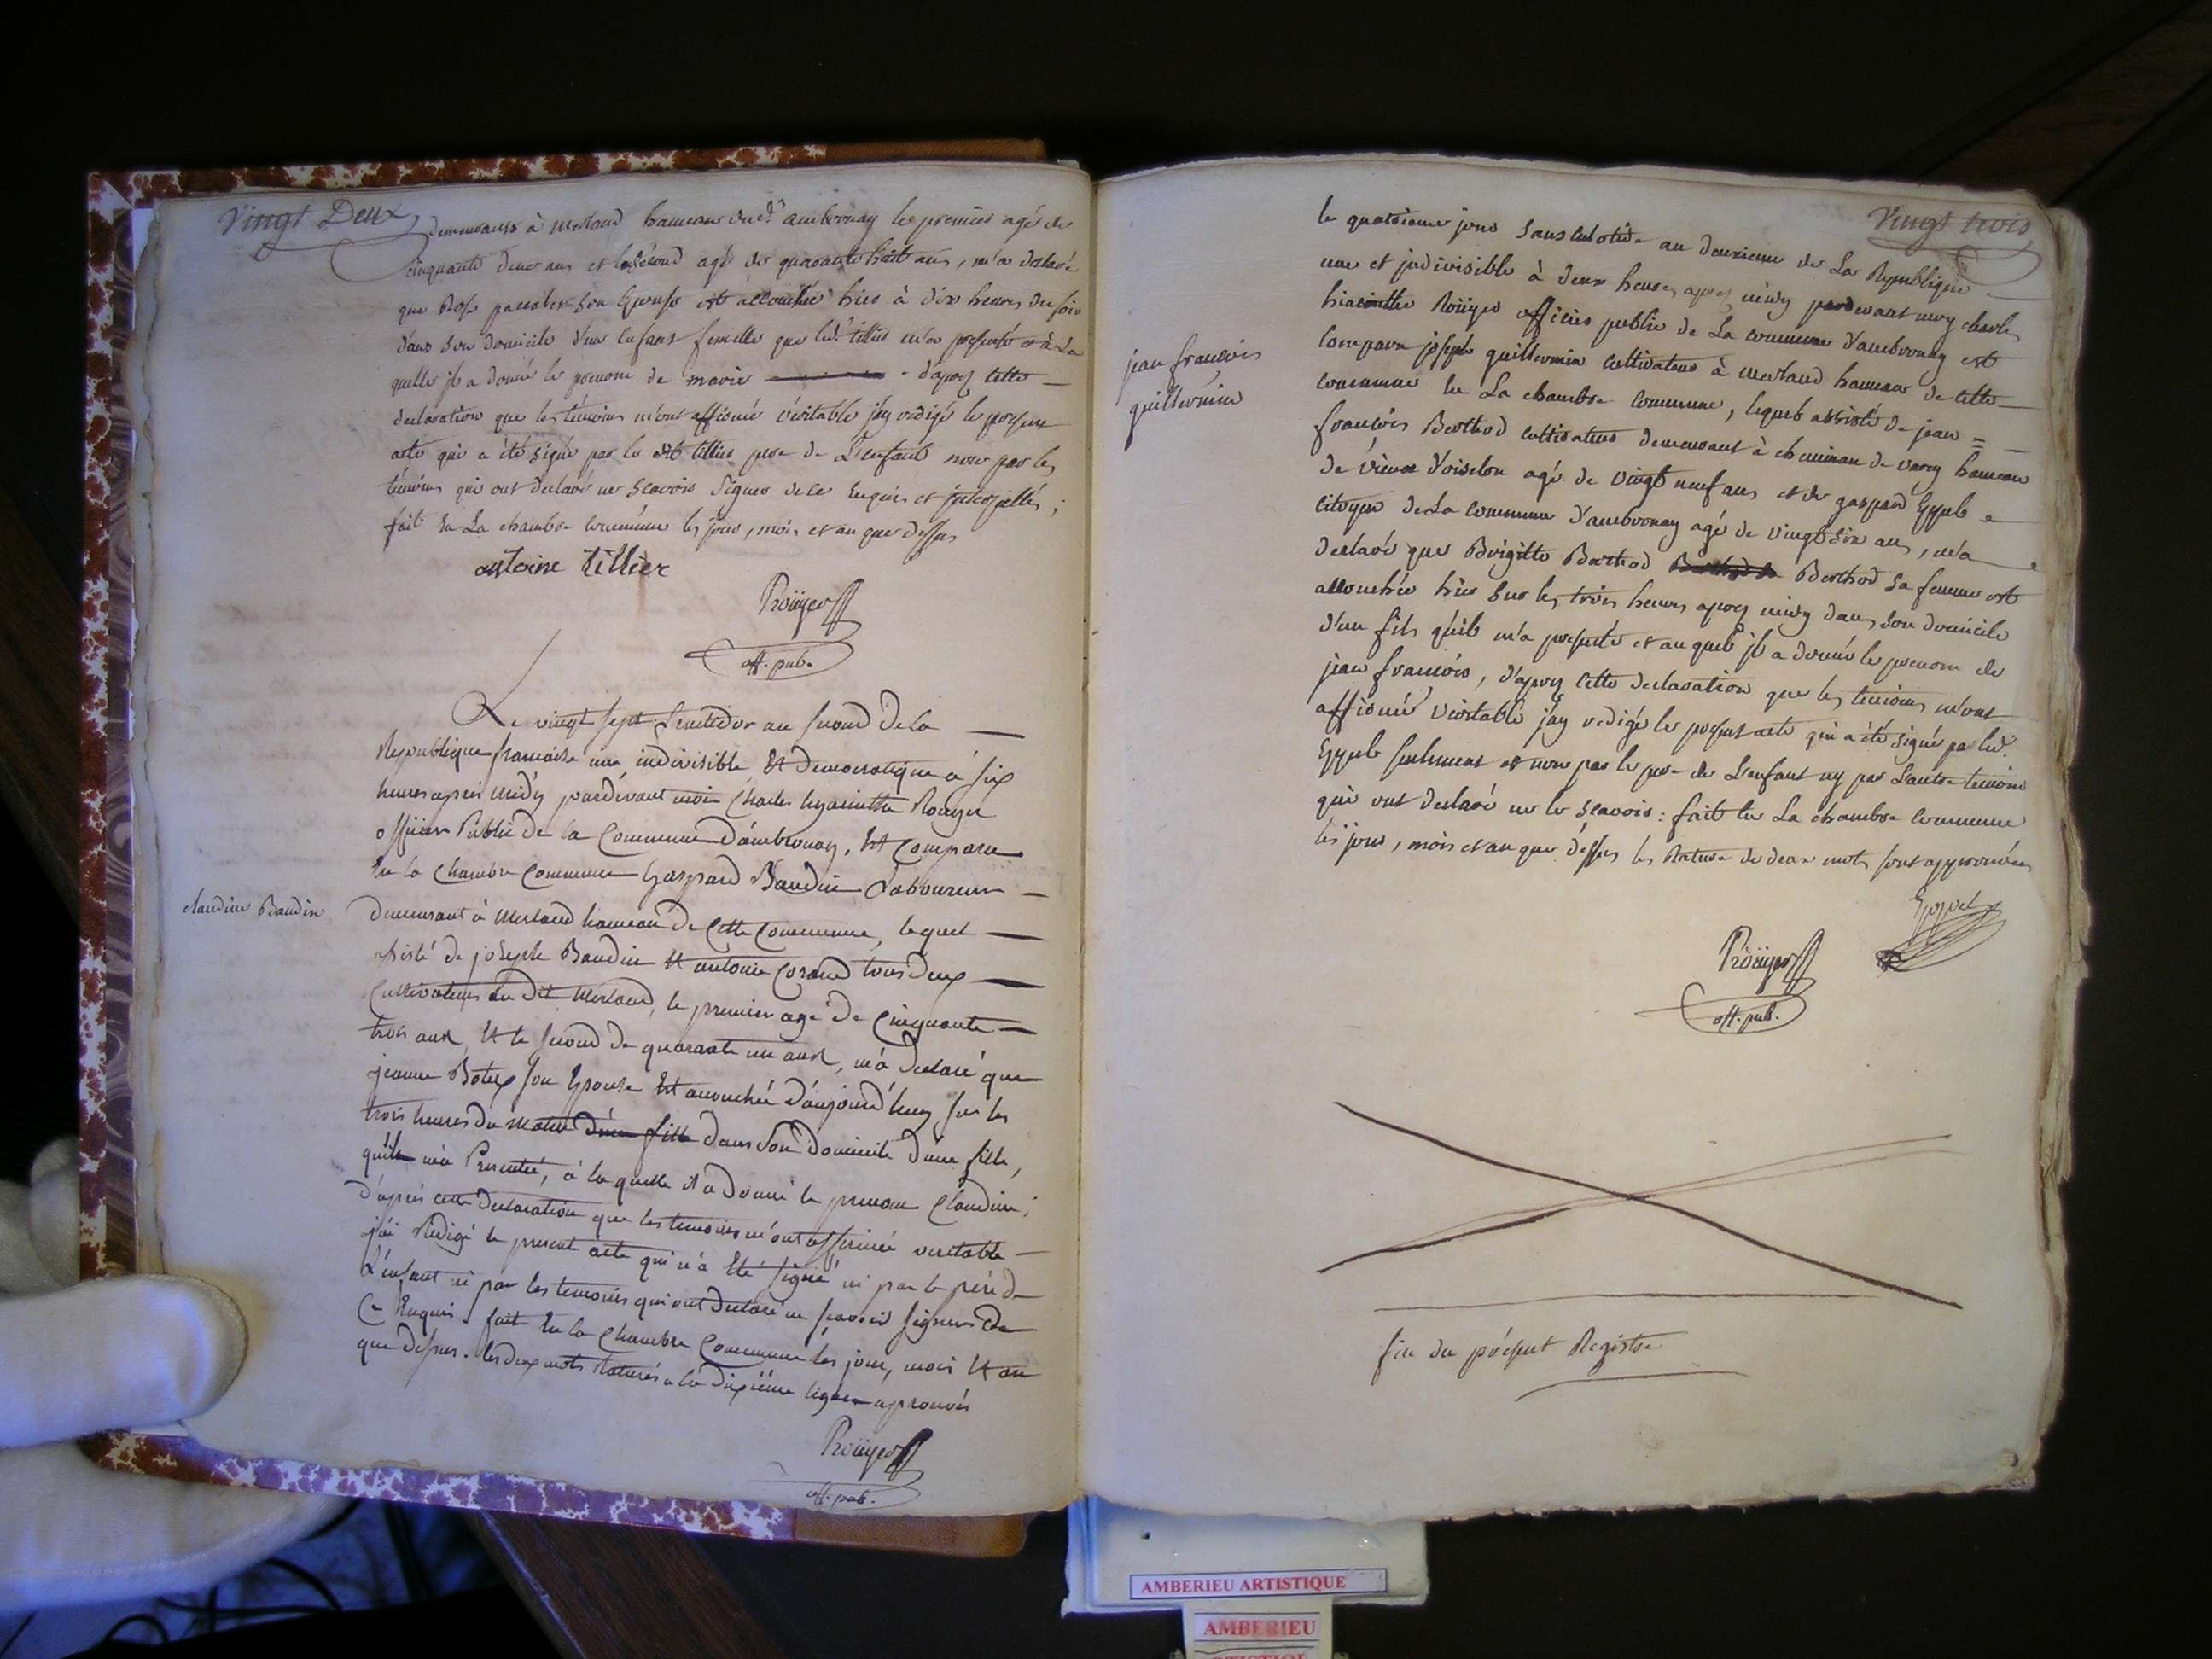 Vingt Deux
demeurants à merland hameau dud.t ambronay le premier agé de
cinquante deux ans et le second agé de quarante huit ans, m'a declaré
que Rose son Epouse est accouchée hier à dix heures du soir
dans son domicile d'un enfant femelle que led.t tillier m'a presenté et à la
quelle jl a donné le prenom de marie - d'aprés cette
declaration que les témoins m'ont affirmé véritable j'ay redigé le present
acte qui a été signé par le dit tillier pere de L'enfant non par les
témoins qui ont declaré ne scavoir signer de ce enquis et interpellés ;
fait en La chambre commune les jour, mois et an que dessus
antoine tillier
Roüyer
off. pub.
Le vingt sept fructidor an second de la
Republique francaise une indivisible Et democratique à six
heures aprés midÿ pardevant moi Charles hyacinthe Rouyer
officier Public de la Commune d'ambronay, Est Comparu
En la Chambre Commune Gaspard Baudin Laboureur
claudine Baudin
demeurant à Merland hameau de Cette Commune, lequel
assisté de joseph Baudin Et antoine tous deux
Cultivateurs du dit Merland, le premier agé de Cinquante
trois ans, Et le second de quarante un ans, m'a declaré que
jeanne son Epouse Est accouchée d'aujourd'huy sur les
trois heures du matin d'une fille dans son domicile d'une fille,
qu'il m'a Presentée, à la quelle il a donné le prenom Claudine ;
d'aprés cette declaration que les temoins m'ont affirmée veritable
j'ai Rédigé le present acte qui n'a Eté signé ni par le pére de
L'enfant ni par les temoins qui ont declaré ne scavoir signer de
Ce Enquis. fait En la Chambre Commune les jour, mois Et an
que dessus. les deux mots Raturés à la dixiéme ligne approuvés
Roüyer
off. pub.
Vingt trois
le quatrieme jour sansculotide an deuxieme de La Republique
une et jndivisible à deux heures aprés midy pardevant moy charles
hiacinthe Roüyer officier public de La commune d'ambronay est
jean françois
guillermin
comparu joseph guillermin cultivateur à merland hameau de cette
commune en La chambre commune, lequel assisté de jean =
françois Berthod cultivateur demeurant à de varey hameau
de vieux d'oiselon agé de vingt neuf ans et de gaspard Eypel
citoyen de La commune d'ambronay agé de vingt six ans, m'a
declaré que Brigitte Berthod Berthod sa femme est
accouchée hier sur les trois heures aprés midy dans son domicile
d'un fils qu'il m'a presenté et au quel jl a donné le prenom de
jean françois, d'aprés cette declaration que les témoins m'ont
affirmé véritable j'ay redigé le present acte qui a été signé par led.
Eypel seulement et non par le pere de L'enfant ny par L'autre temoin
qui ont declaré ne le scavoir : fait en La chambre commune
les jour, mois et an que dessus les Rature de deux mots sont approuvées
Eypel
Roüyer
off. pub.
fin du présent Registre
AMBERIEU ARTISTIQUE
AMBERIEU
ARTISTIQUE